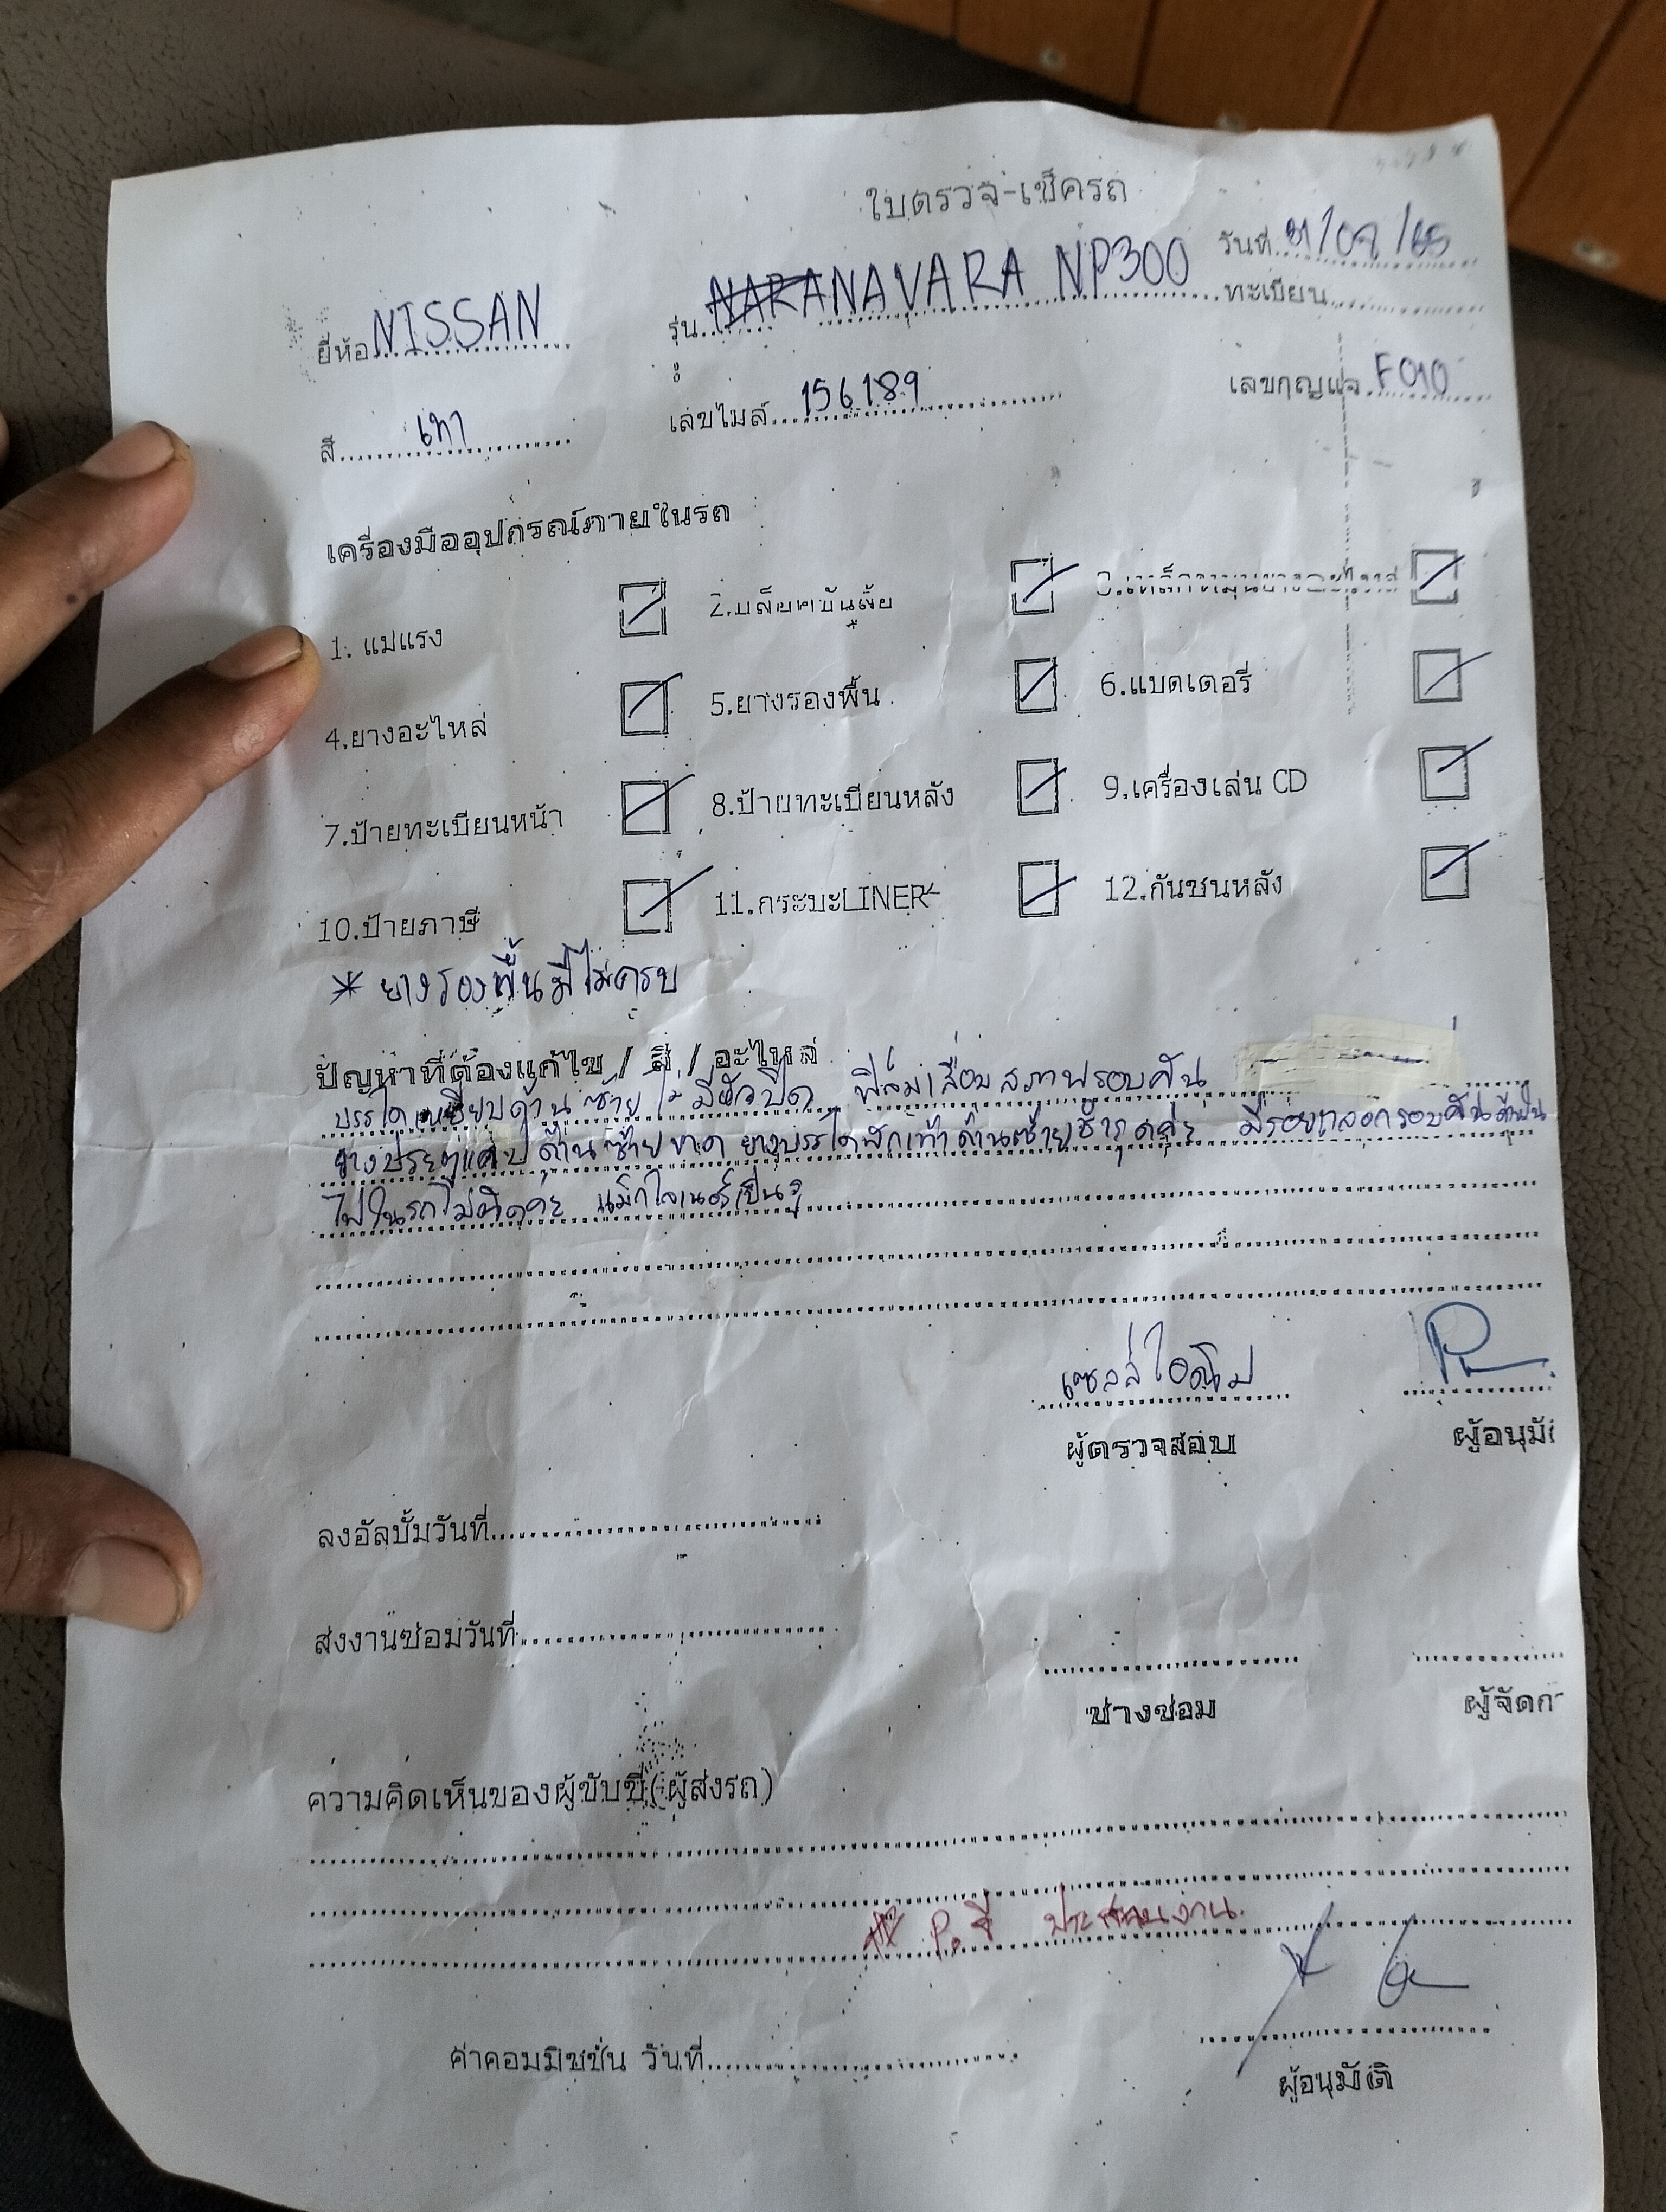 ใบตรวจ-เช็ครถ
วันที่ /07/65
ยี่ห้อ NISSAN รุ่น NAVARA NP300 ทะเบียน
สี เทา เลขไมล์ 156189 เลขกุญแจ F010
เครื่องมืออุปกรณ์ภายในรถ
1. แม่แรง 2.บล็อคขันล้อ
4.ยางอะไหล่ 5.ยางรองพื้น 6.แบตเตอรี่
7.ป้ายทะเบียนหน้า 8.ป้ายทะเบียนหลัง 9.เครื่องเล่น CD
10.ป้ายภาษี 11.กระบะLINER 12.กันชนหลัง
* ยางรองพื้นมีไม่ครบ
ปัญหาที่ต้องแก้ไข / สี / อะไหล่
บรรไดเหยียบด้านซ้ายไม่มีตัวปิด ฟิล์มเสื่อมสภาพรอบคัน
ยางประตูแคปด้านซ้ายขาด ยางบรรไดพักเท้าด้านซ้ายชำรุดค่ะ มีรอยถลอกรอบคัน
ไฟในรถไม่ติดค่ะ แม็กไลเนอร์เป็นรู
เซลล์
ผู้ตรวจสอบ ผู้อนุมั
ลงอัลบั้มวันที่
ส่งงานซ่อมวันที่
ช่างซ่อม ผู้จัดก
ความคิดเห็นของผู้ขับขี่(ผู้ส่งรถ)
ประสานงาน.
ค่าคอมมิชชั่น วันที่
ผู้อนุมัติ